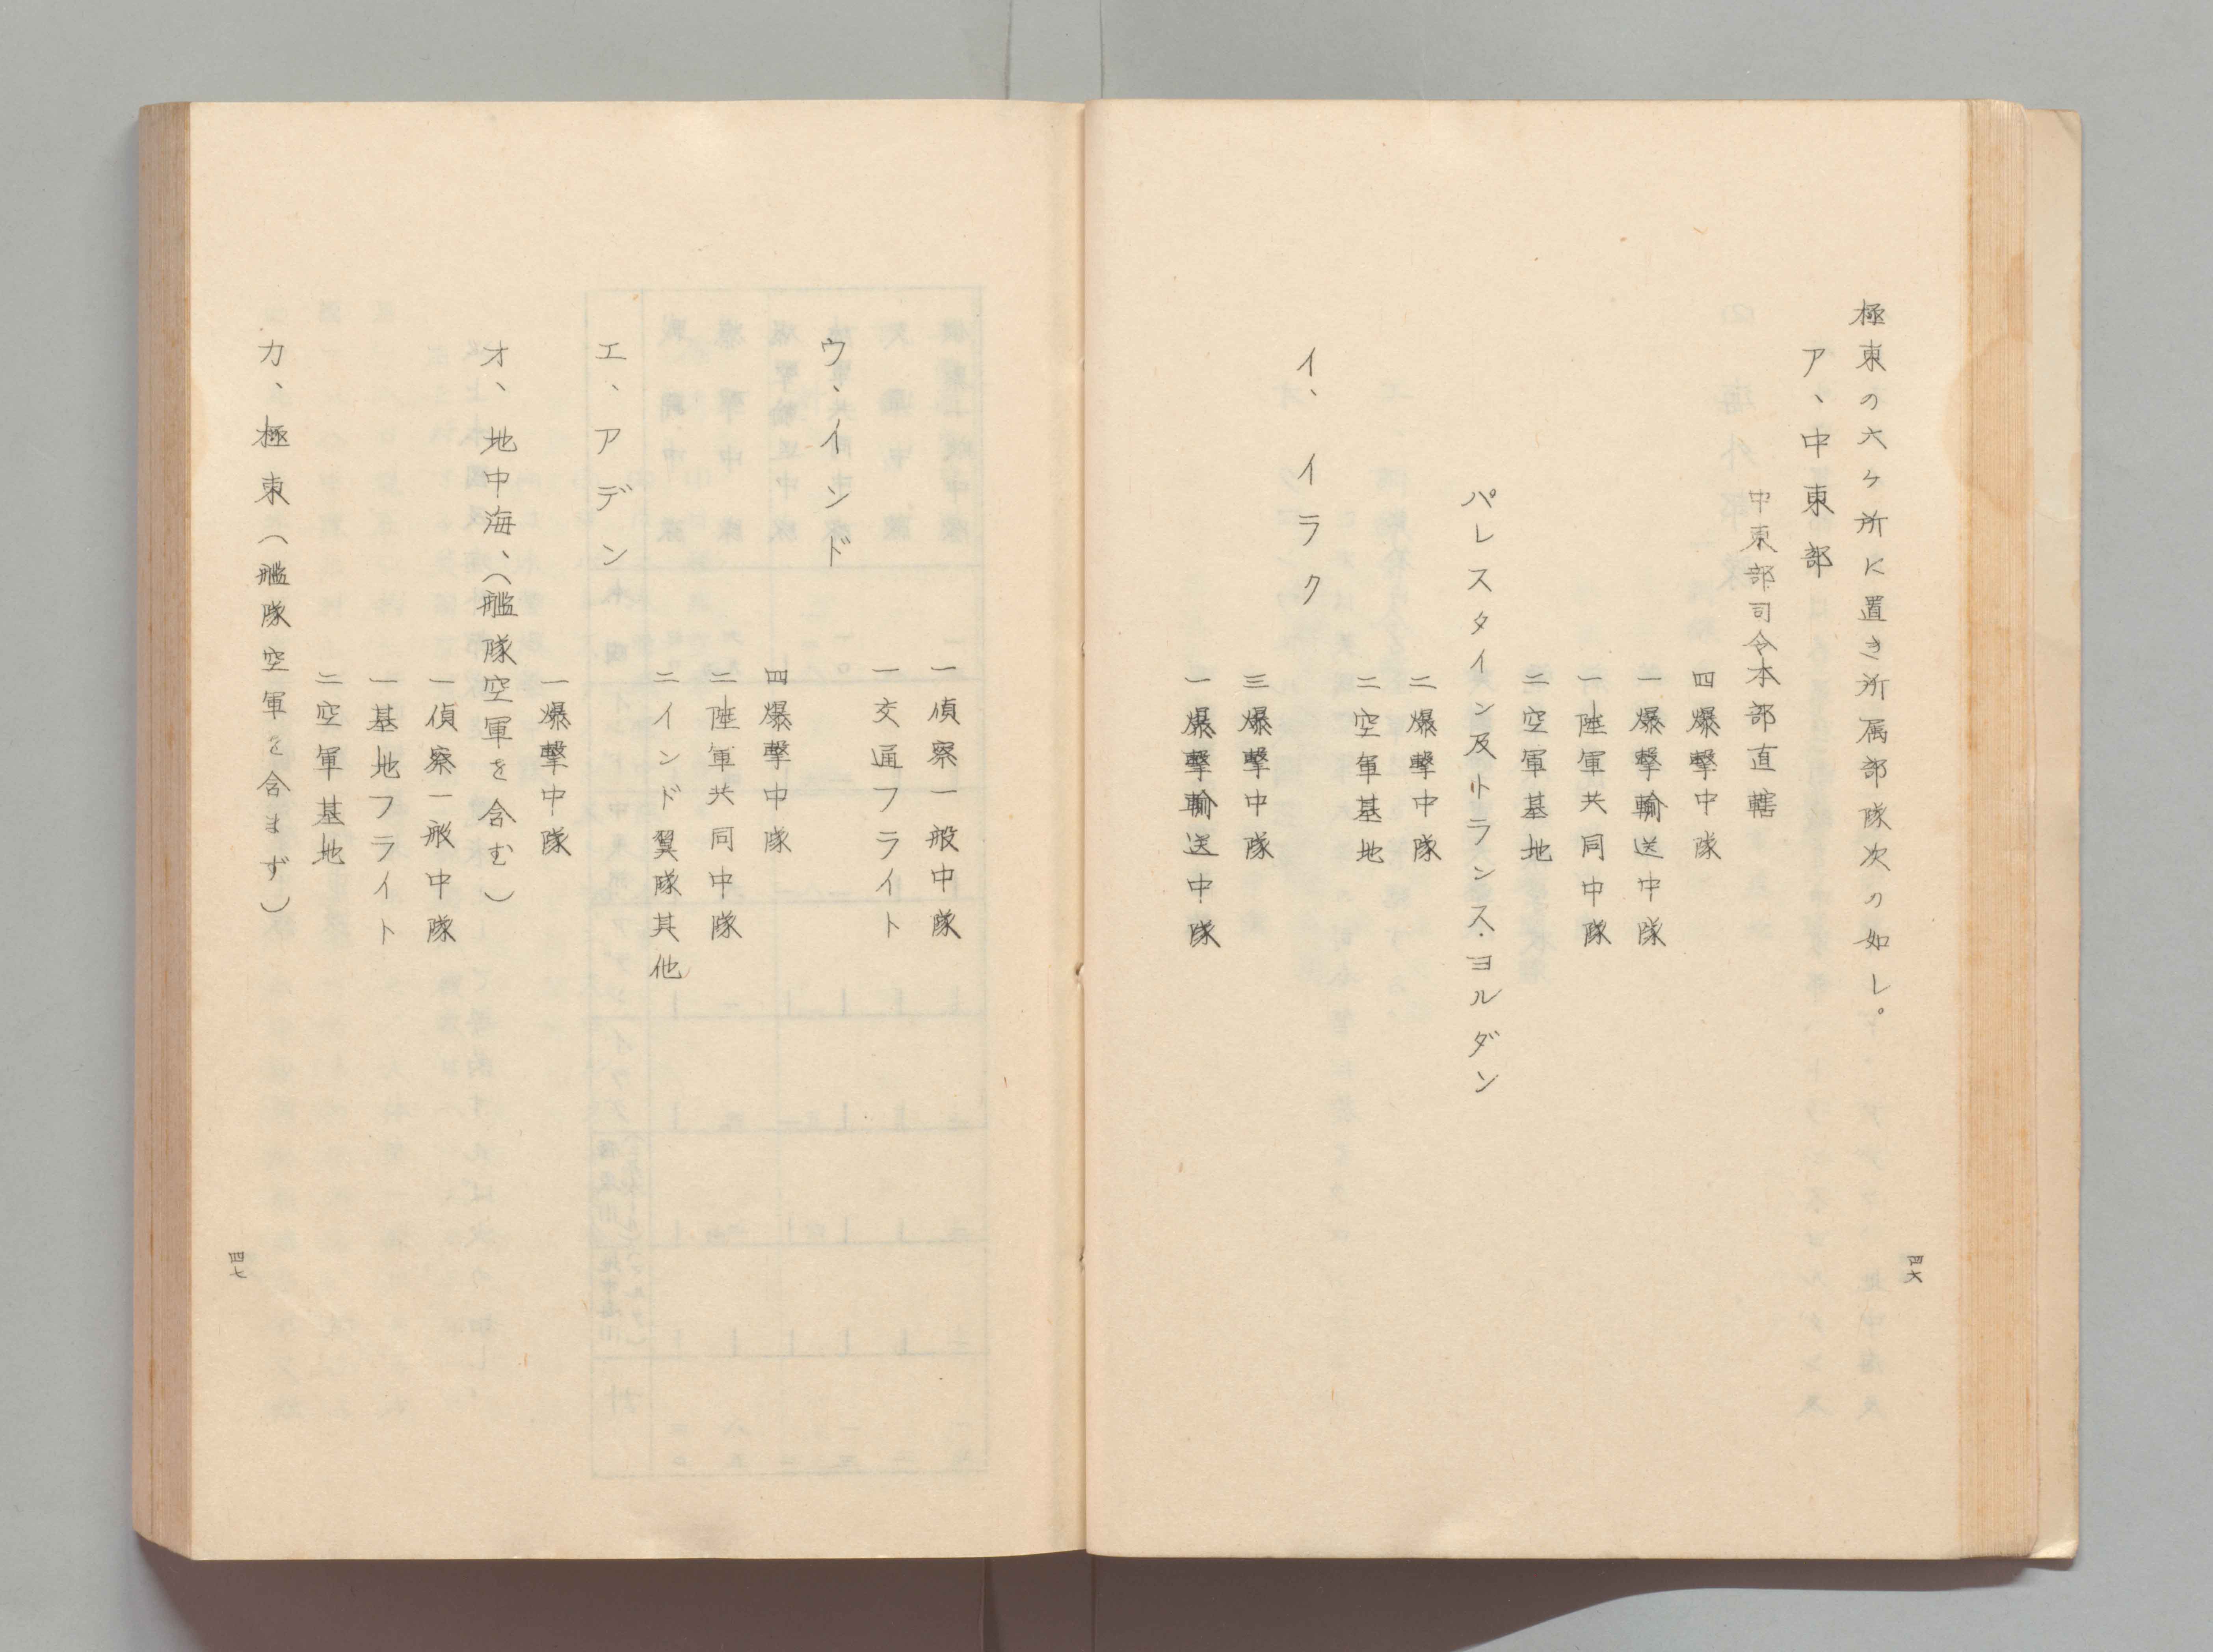 極東の六ヶ所に置き所属部隊次の如し。
ア、中東部
中東部司令本部直轄
四爆撃中隊
一爆撃輸送中隊
一陸軍共同中隊
二空軍基地
パレスタイン及トランス・ヨルダン
二爆撃中隊
二空軍基地
イ、イラク
三爆撃中隊
一爆撃輸送中隊
四六
一偵察一般中隊
一交通フライト
ウ、インド
四爆撃中隊
二陸軍共同中隊
二インド翼隊其他
エ、アデン
一爆撃中隊
オ、地中海、(艦隊空軍を含む)
一偵察一般中隊
一基地フライト
二空軍基地
カ、極東(艦隊空軍を含まず)
四七